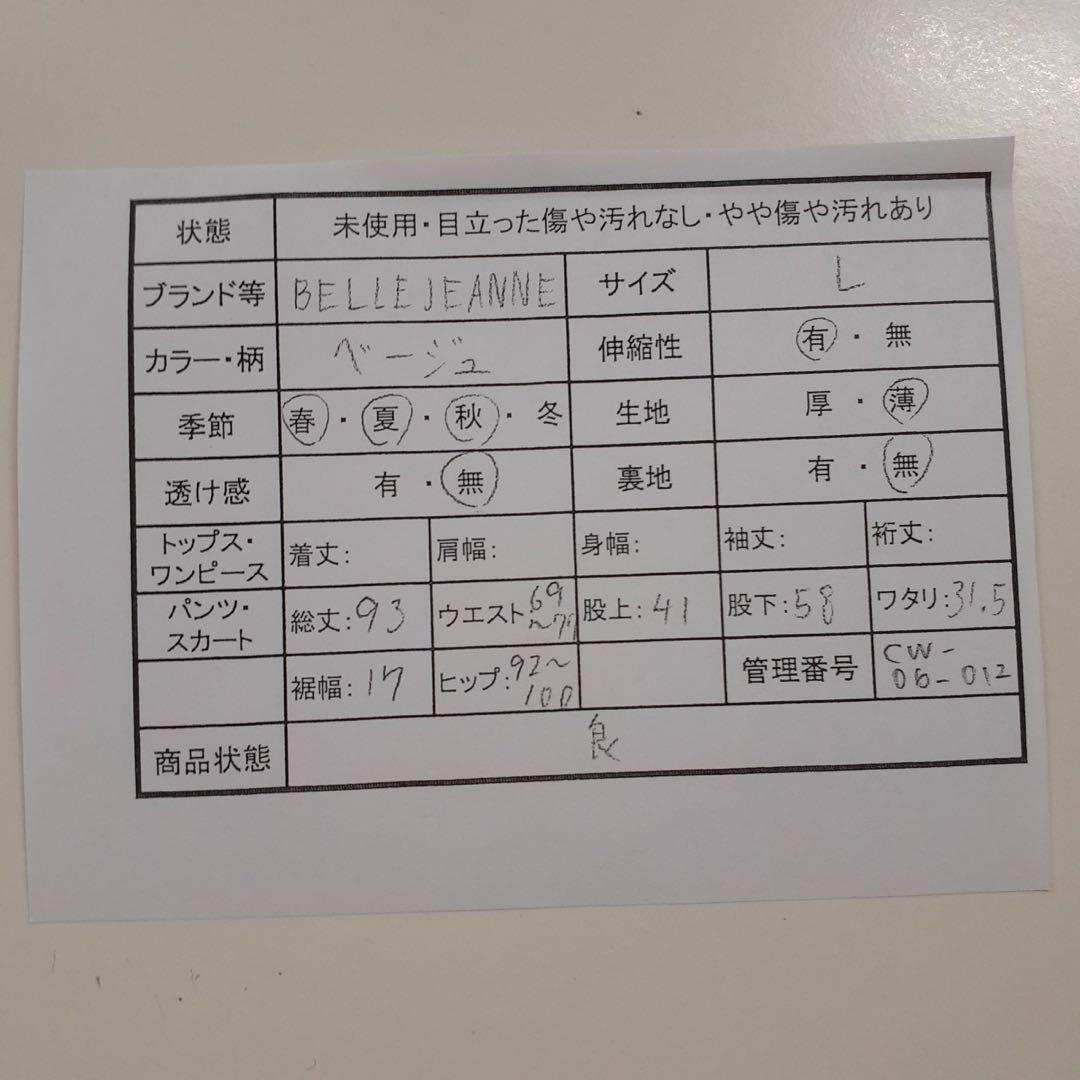 状態 未使用・目立った傷や汚れなし・やや傷や汚れあり
ブランド等 BELLEJEANNE サイズ L
カラー・柄 ベージュ 伸縮性 有・無
季節 春・夏・秋・冬 生地 厚・薄
透け感 有・無 裏地 有・無
トップス・
ワンピース 着丈: 肩幅: 身幅: 袖丈: 裄丈:
パンツ・
スカート 総丈:93 ウエスト69
~77 股上:41 股下:58 ワタリ:31.5
裾幅:17 ヒップ:92~
100 管理番号 CW-
06-012
商品状態 良